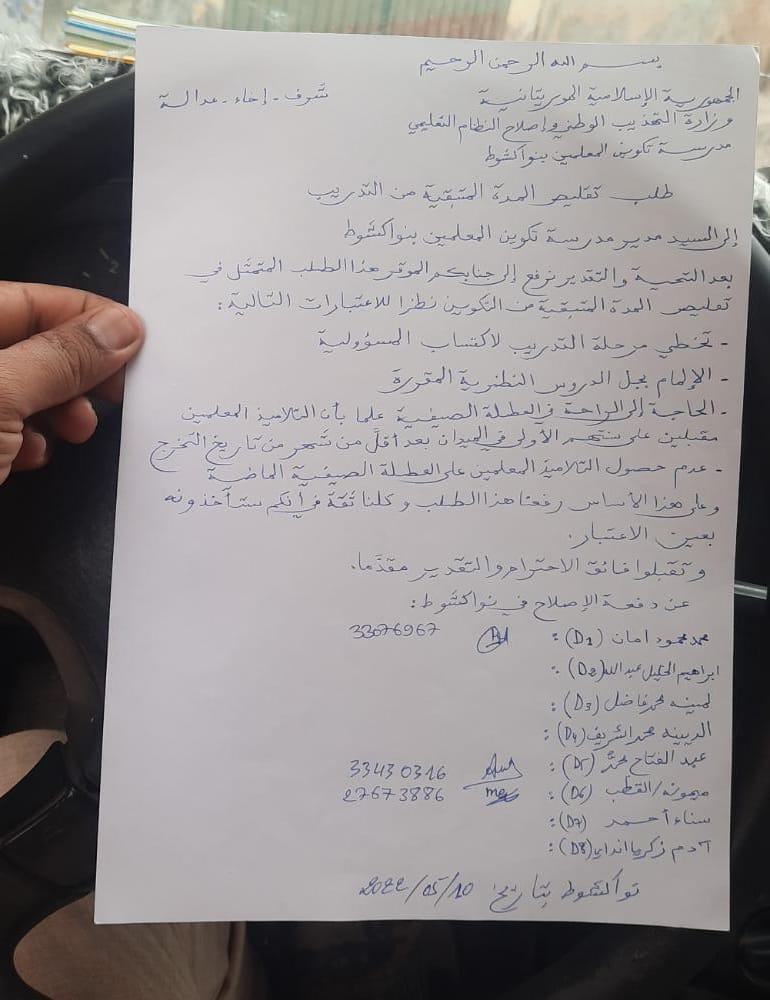 بسم الله الرحمن الرحيم
الجمهورية الإسلامية الموريتانية شرف - إخاء - عدالة
وزارة التهذيب الوطني وإصلاح النظام التعليمي
مدرسة تكوين المعلمين بنواكشوط
طلب تقليص المدة المتبقية من التدريب
إلى السيد مدير مدرسة تكوين المعلمين بنواكشوط
بعد التحية والتقدير نرفع إلى جنابكم الموقر هذا الطلب المتمثل في
تقليص المدة المتبقية من التكوين نظرا للاعتبارات التالية:
- تخطي مرحلة التدريب لاكتساب المسؤولية
- الإلمام بجل الدروس النظرية المقررة
- الحاجة إلى الراحة في العطلة الصيفية علما بأن التلاميذ المعلمين
مقبلين على سنتهم الأولى في الميدان بعد أقل من شهر من تاريخ التخرج
- عدم حصول التلاميذ المعلمين على العطلة الصيفية الماضية
وعلى هذا الأساس رفعنا هذا الطلب وكلنا ثقة في أنكم ستأخذونه
بعين الاعتبار.
وتقبلوا فائق الاحترام والتقدير مقدما.
عن دفعة الإصلاح في نواكشوط:
محمد محمود امان (D1): 33076967
ابراهيم الخليل عبد الله (D2):
لمينه محمد فاضل (D3):
محمد الشريف (D4):
عبد الفتاح محمد (D5): 33430316
ميمونه/القطب (D6): 27673886
سناء أحمد (D7):
آدم زكريا انداي (D8):
نواكشوط بتاريخ 2022/05/10